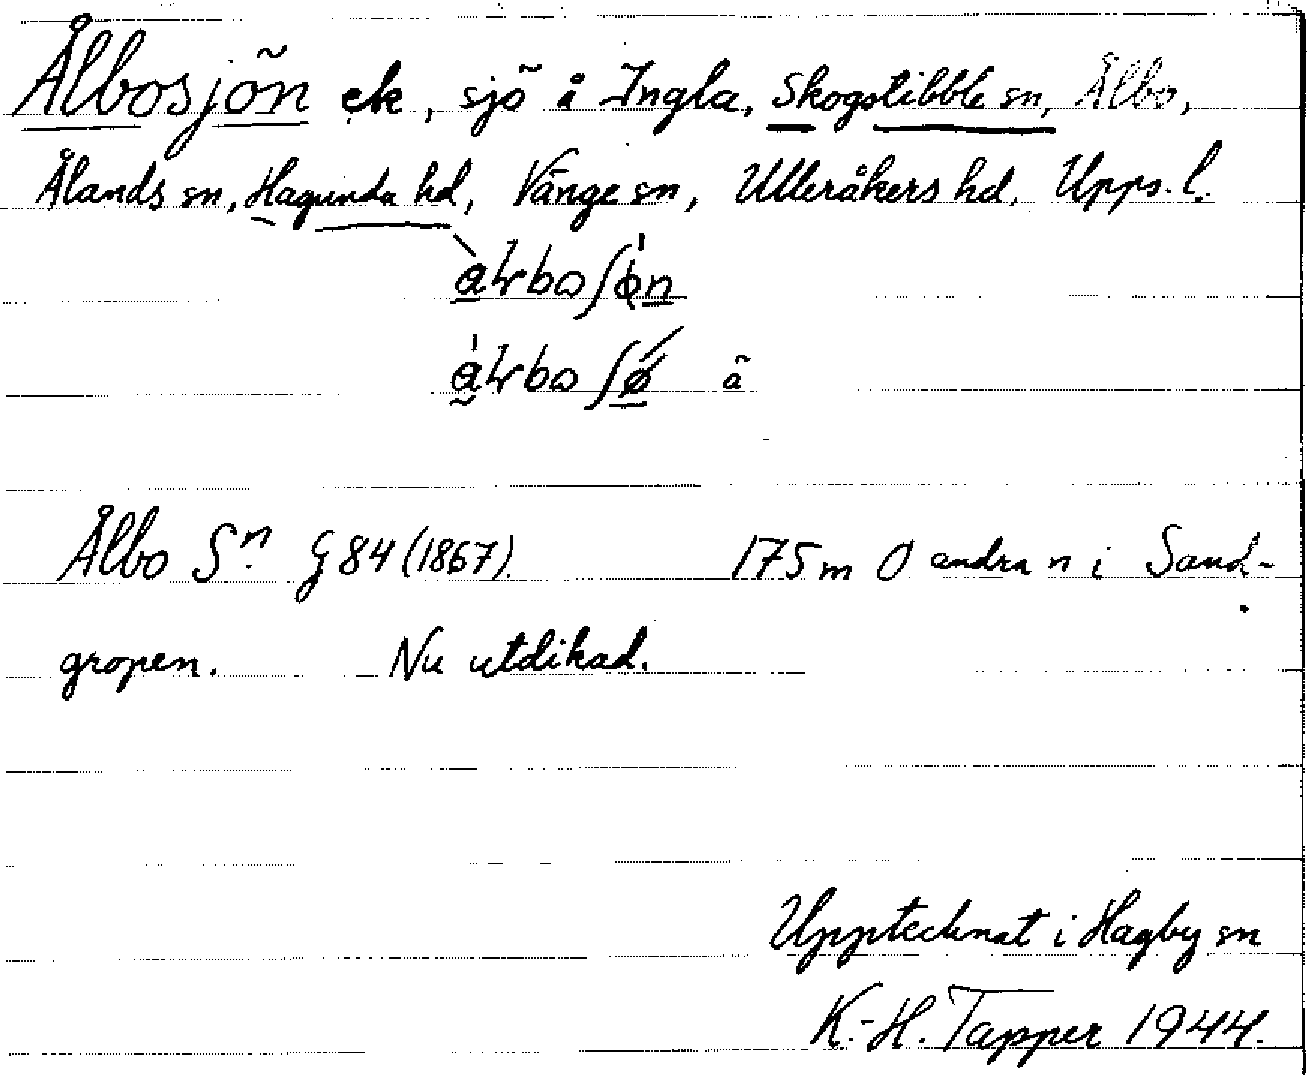 Ålbosjön ek, sjö å Ingla, Skogstibble sn, Ålbo,
Ålands sn, Hagunda hd, Vänge sn, Ulleråkers hd. Upps. l.
å
Ålbo Sn. G 84 (1867). 175 m O andra n i Sand-
gropen. Nu utdikad.
Upptecknat i Hagby sn
K.-H. Tapper 1944.